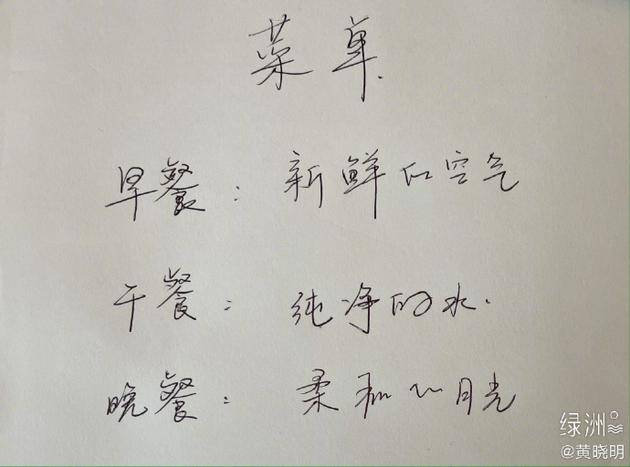 菜单.
早餐：新鲜的空气
干餐：纯净的水.
晚餐：柔和的月光
绿洲
@黄晓明